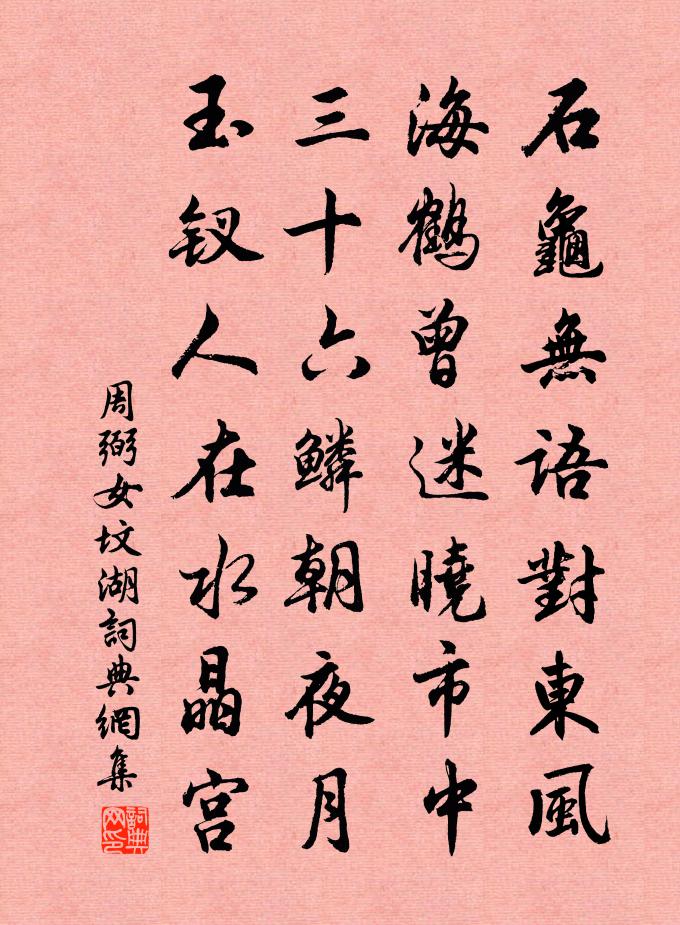 石龜無語對東風
海鶴曾迷曉市中
三十六鱗朝夜月
玉钗人在水晶宫
周弼女坟湖詞典網集
詞典网印